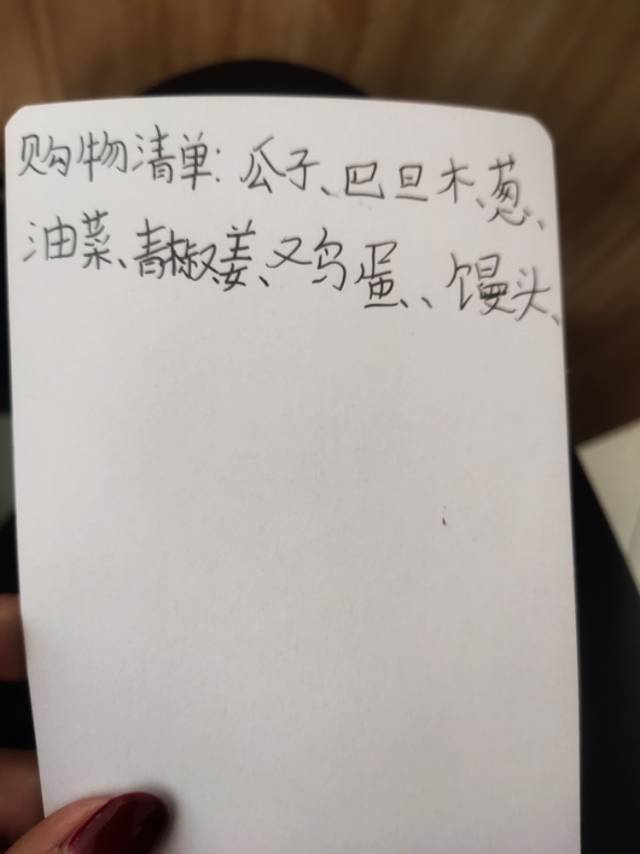 购物清单：瓜子、巴旦木、葱、
油菜、青椒、姜、鸡蛋、、馒头、